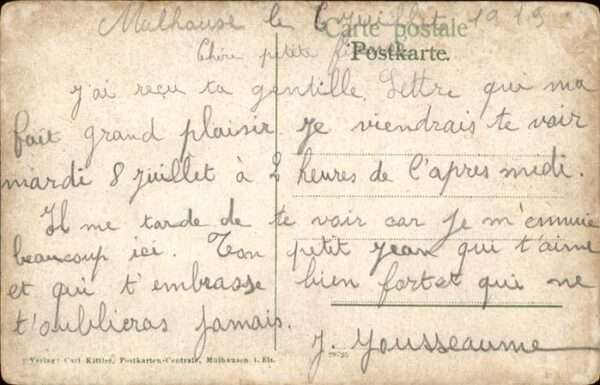 Mulhouse le 6 juillet 1913
Carte postale
Postkarte.
Chère petite
j'ai reçu ta gentille lettre qui ma
fait grand plaisir. Je viendrais te voir
mardi 8 juillet à 2 heures de l'apres midi.
Il me tarde de te voir car je m'ennuie
beaucoup ici. Ton petit Jean qui t'aime
et qui t'embrasse bien fort et qui ne
t'oublieras jamais.
J. Jousseaume
Verlag: Carl Kittler, Postkarten-Centrale, Mülhausen i. Els.